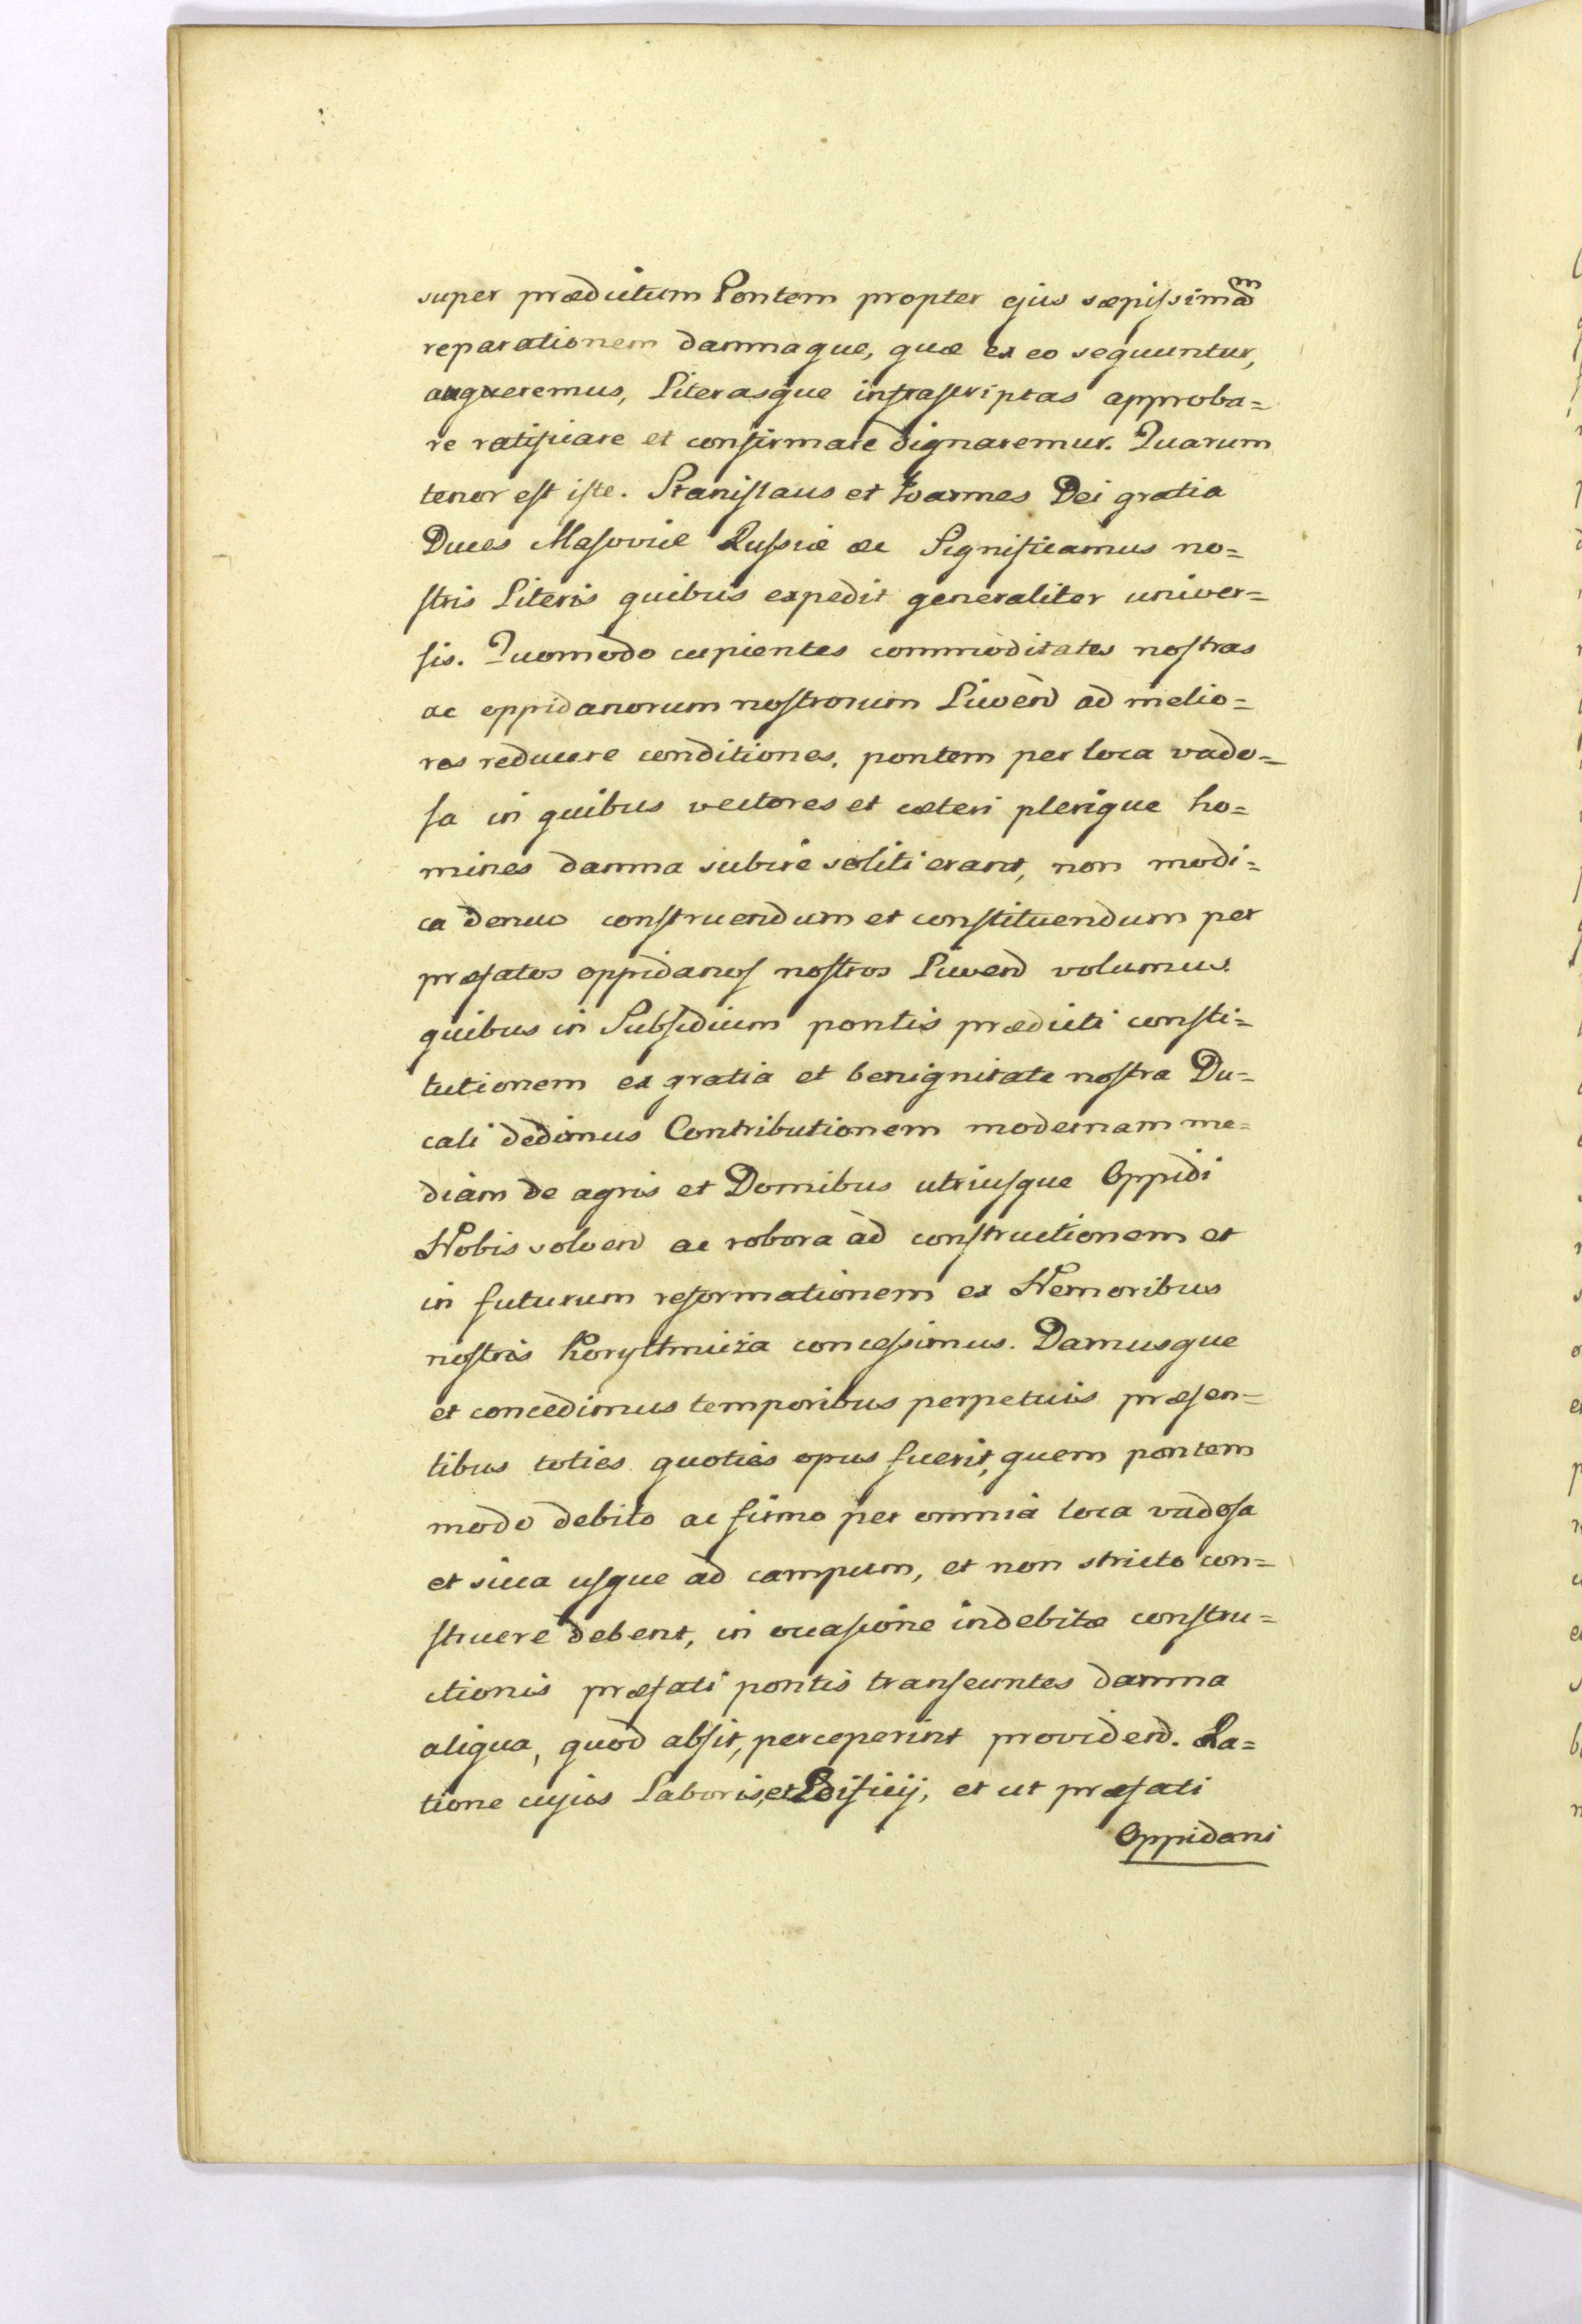 super prædictum Pontem propter ejus sæpissimam
reparationem damnaque, quæ ex eo sequuntur,
augeremus, Literasque infrascriptas approba=
re ratificare et confirmare dignaremur. Quarum
tenor est iste. Stanislaus et Joannes Dei gratia
Duces Masoviæ Russiæ &c Significamus no=
stris Literis quibus expedit generaliter univer=
sis. Quomodo cupientes commoditates nostras
ac oppidanorum nostrorum Liwen̄d ad melio=
res reducere conditiones, pontem per loca vado=
sa in quibus vectores et cæteri plerique ho=
mines damna subire soliti erant, non modi=
ca denuo construendum et constituendum per
præfatos oppidanos nostros Liwend volumus.
quibus in Subsidium pontis prædicti consti=
tutionem ex gratia et benignitate nostra Du=
cali dedimus Contributionem modernam me=
diam de agris et Domibus utriusque Oppidi
Nobis solvend ac robora ad constructionem et
in futurum reformationem ex Nemoribus
nostris Korythnicza concessimus. Damusque
et concedimus temporibus perpetuis præsen=
tibus toties quoties opus fuerit, quem pontem
modo debito ac firmo per omnia loca vadosa
et sicca usque ad campum, et non stricto con=
struere debent, in occasione indebitæ constru=
ctionis præfati pontis transeuntes damna
aliqua, quod absit, perceperint providend. Ra=
tione cujus Laboris, et Edificij, et ut præfati
Oppidani